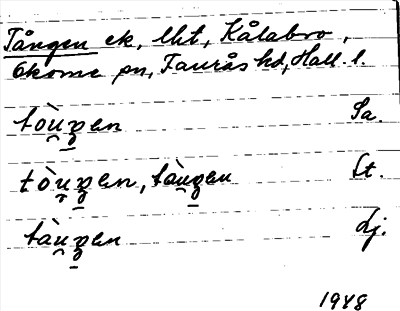 Tången ek, lht, Kålabro,
Okome sn, Faurås hd, Hall. l.
tòu̯ŋen Sa.
tòu̯ŋen, tàu̯ŋen St.
tàu̯ŋen Lj.
1948